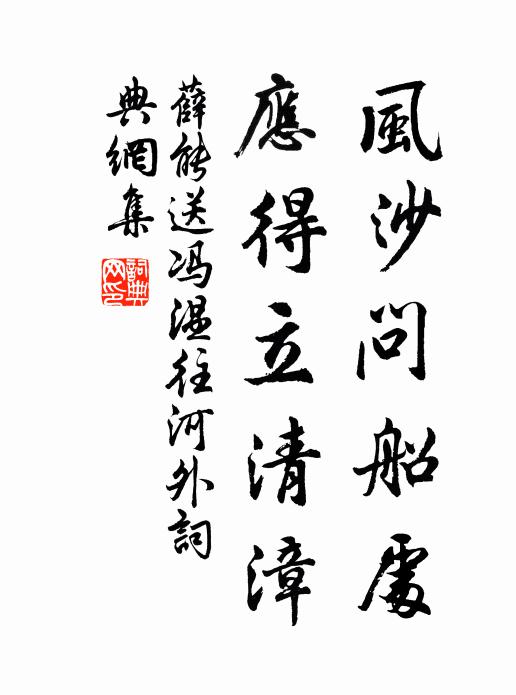 風沙問船處
應得立清漳
薛能送冯温往河外詞
典網集
詞典网印